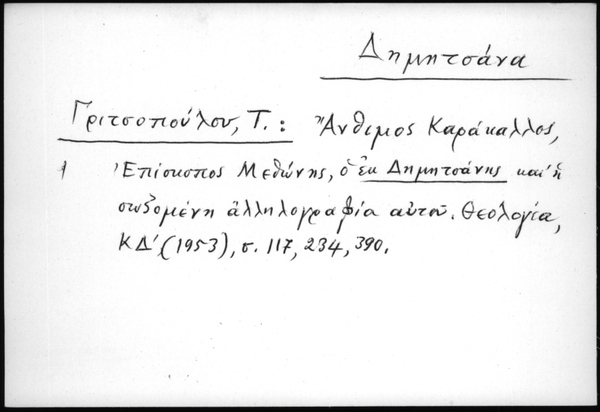 Δημητσάνα
Γριτσοπούλου, Τ.: Ἄνθιμος Καράκαλλος,
Ἐπίσκοπος Μεθώνης, ὁ ἐκ Δημητσάνης καὶ ἡ
σωζομένη ἀλληλογραφία αὐτοῦ. Θεολογία,
ΚΔ' (1953), σ. 117, 234, 390.